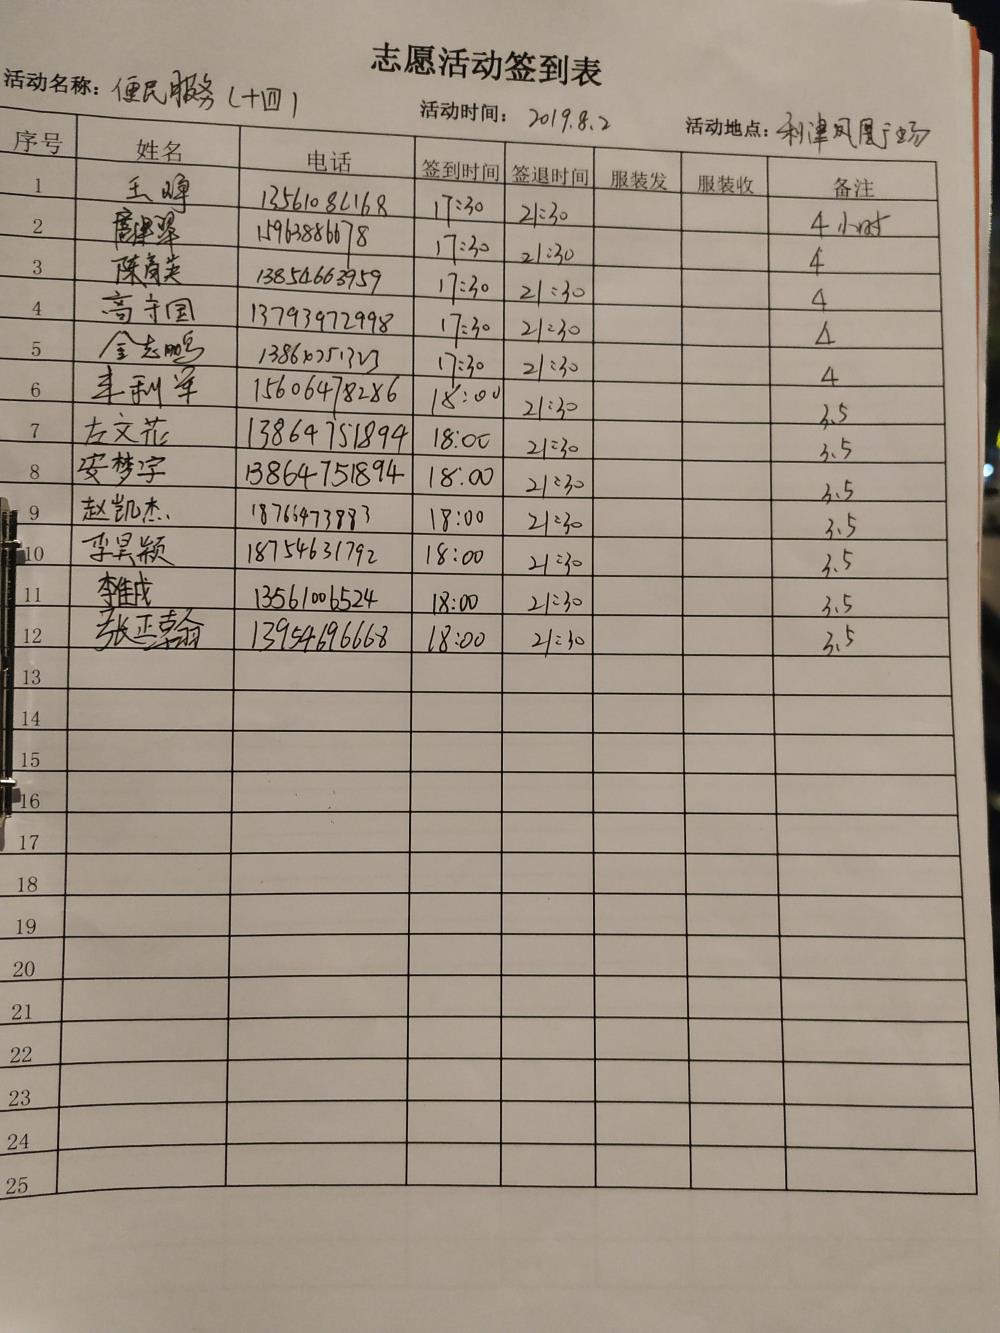 志愿活动签到表
活动名称：便民服务（十四） 活动时间：2019.8.2 活动地点：利津凤凰广场
序号 姓名 电话 签到时间 签退时间 服装发 服装收 备注
1 王峰 13561086168 17:30 21:30 4小时
2 15963886678 17:30 21:30 4
3 陈育英 13854663959 17:30 21:30 4
4 高守国 13793972998 17:30 21:30 4
5 金志鹏 17:30 21:30 4
6 利军 15606478286 18:00 21:30 3.5
7 左文花 13864751894 18:00 21:30 3.5
8 安梦宇 13864751894 18:00 21:30 3.5
9 赵凯杰 18766473883 18:00 21:30 3.5
10 李昊颖 18754631792 18:00 21:30 3.5
11 李佳成 13561006524 18:00 21:30 3.5
12 张正翰 13954696668 18:00 21:30 3.5
13
14
15
16
17
18
19
20
21
22
23
24
25